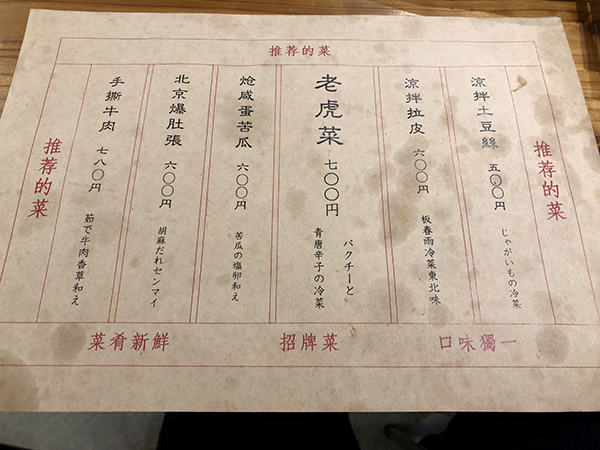 推荐的菜
推荐的菜
涼拌土豆絲
五〇〇円
じゃがいもの冷菜
涼拌拉皮
六〇〇円
板春雨冷菜東北味
老虎菜
七〇〇円
パクチーと
青唐辛子の冷菜
炝咸蛋苦瓜
六〇〇円
苦瓜の塩卵和え
北京爆肚張
六〇〇円
胡麻だれセンマイ
手撕牛肉
七八〇円
茹で牛肉香草和え
推荐的菜
菜肴新鮮
招牌菜
口味獨一